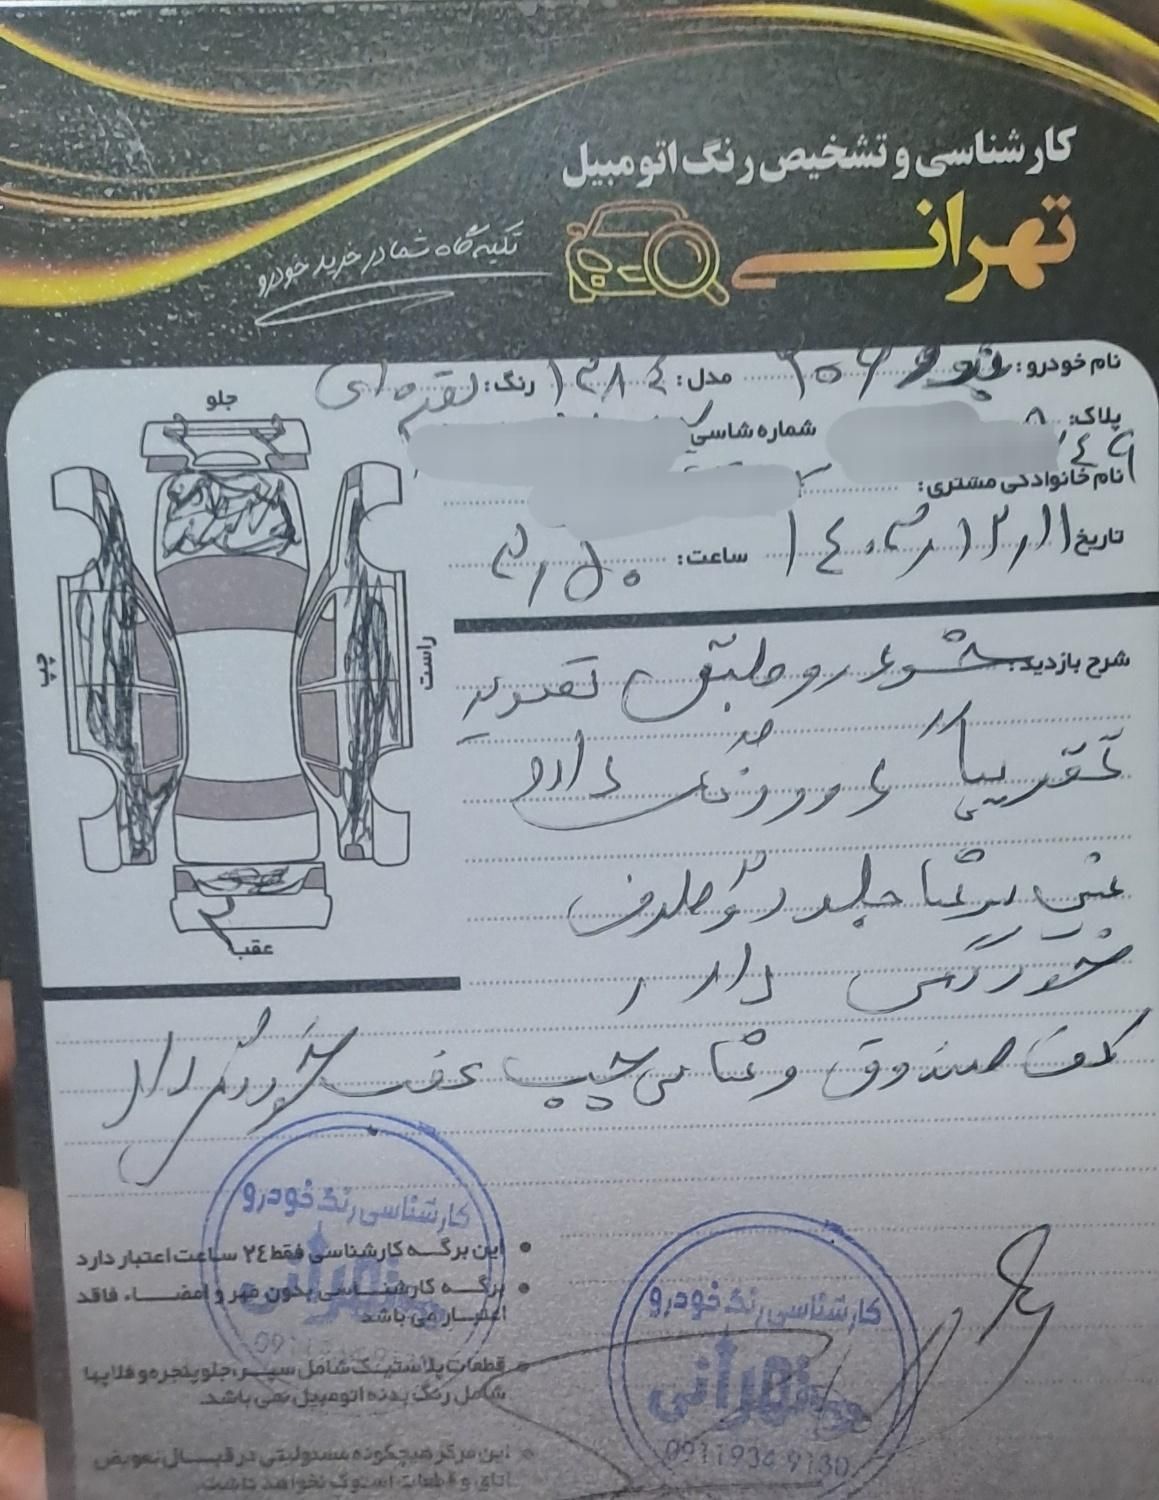 کارشناسی و تشخیص رنگ اتومبیل
تهرانی
تکیه گاه شما در خرید خودرو
نام خودرو: پژو ۲۰۶ مدل: ۱۳۸۴ رنگ: نقره ای
پلاک: شماره شاسی
نام خانوادگی مشتری:
تاریخ ۱۴۰۳/۱۲/۱۱ ساعت: ۳/۵۰
جلو
چپ
راست
عقب
شرح بازدید: خودرو طبق تصویر
تقریباً دور رنگ دارد
سرشاسی جلو دو طرف
خوردگی دارد
کف صندوق و شاسی چپ عقب خوردگی دارد
کارشناسی رنگ خودرو
تهرانی
این برگه کارشناسی فقط ۲٤ ساعت اعتبار دارد
برگه کارشناسی بدون مهر و امضاء فاقد
اعتبار می باشد
قطعات پلاستیک شامل سپر، جلو پنجره و فلاپها
شامل رنگ بدنه اتومبیل نمی باشد.
این مرکز هیچگونه مسئولیتی در قبال تعویض
اتاق و قطعات استوک نخواهد داشت.
کارشناسی رنگ خودرو
تهرانی
0911934 9130